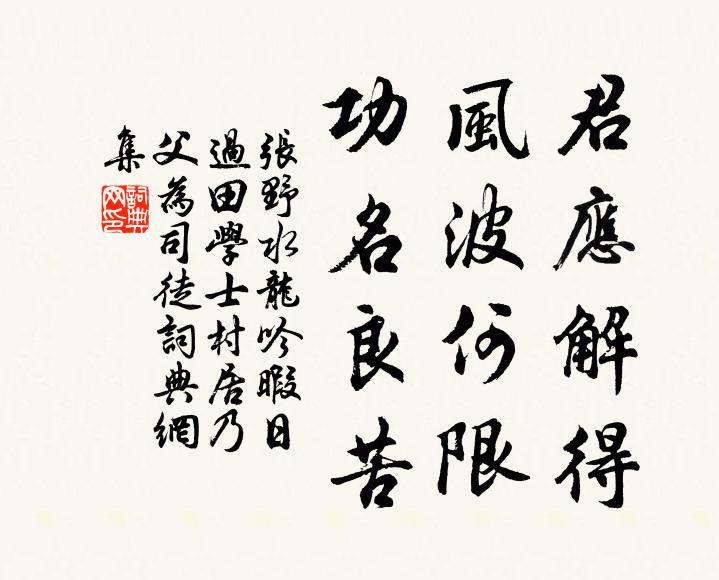 君應解得
風波何限
功名良苦
張野水龍吟暇日
過田學士村居乃
父為司徒詞典網
集
詞典网印